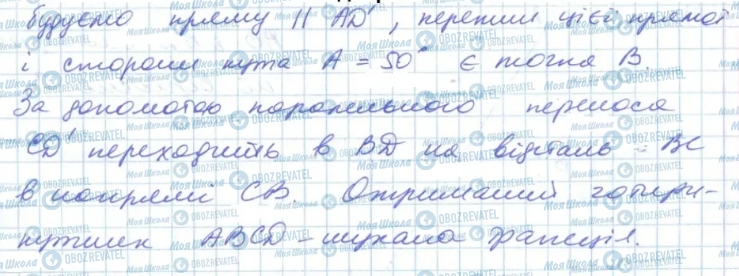 будуємо пряму || AD', перетин цієї прямої
і сторони кута A = 50° є точка B.
За допомогою паралельного переноса
CD' переходить в BD на відстань BC
в напрямі CB. Отриманий чотири-
кутник ABCD - шукана трапеція.